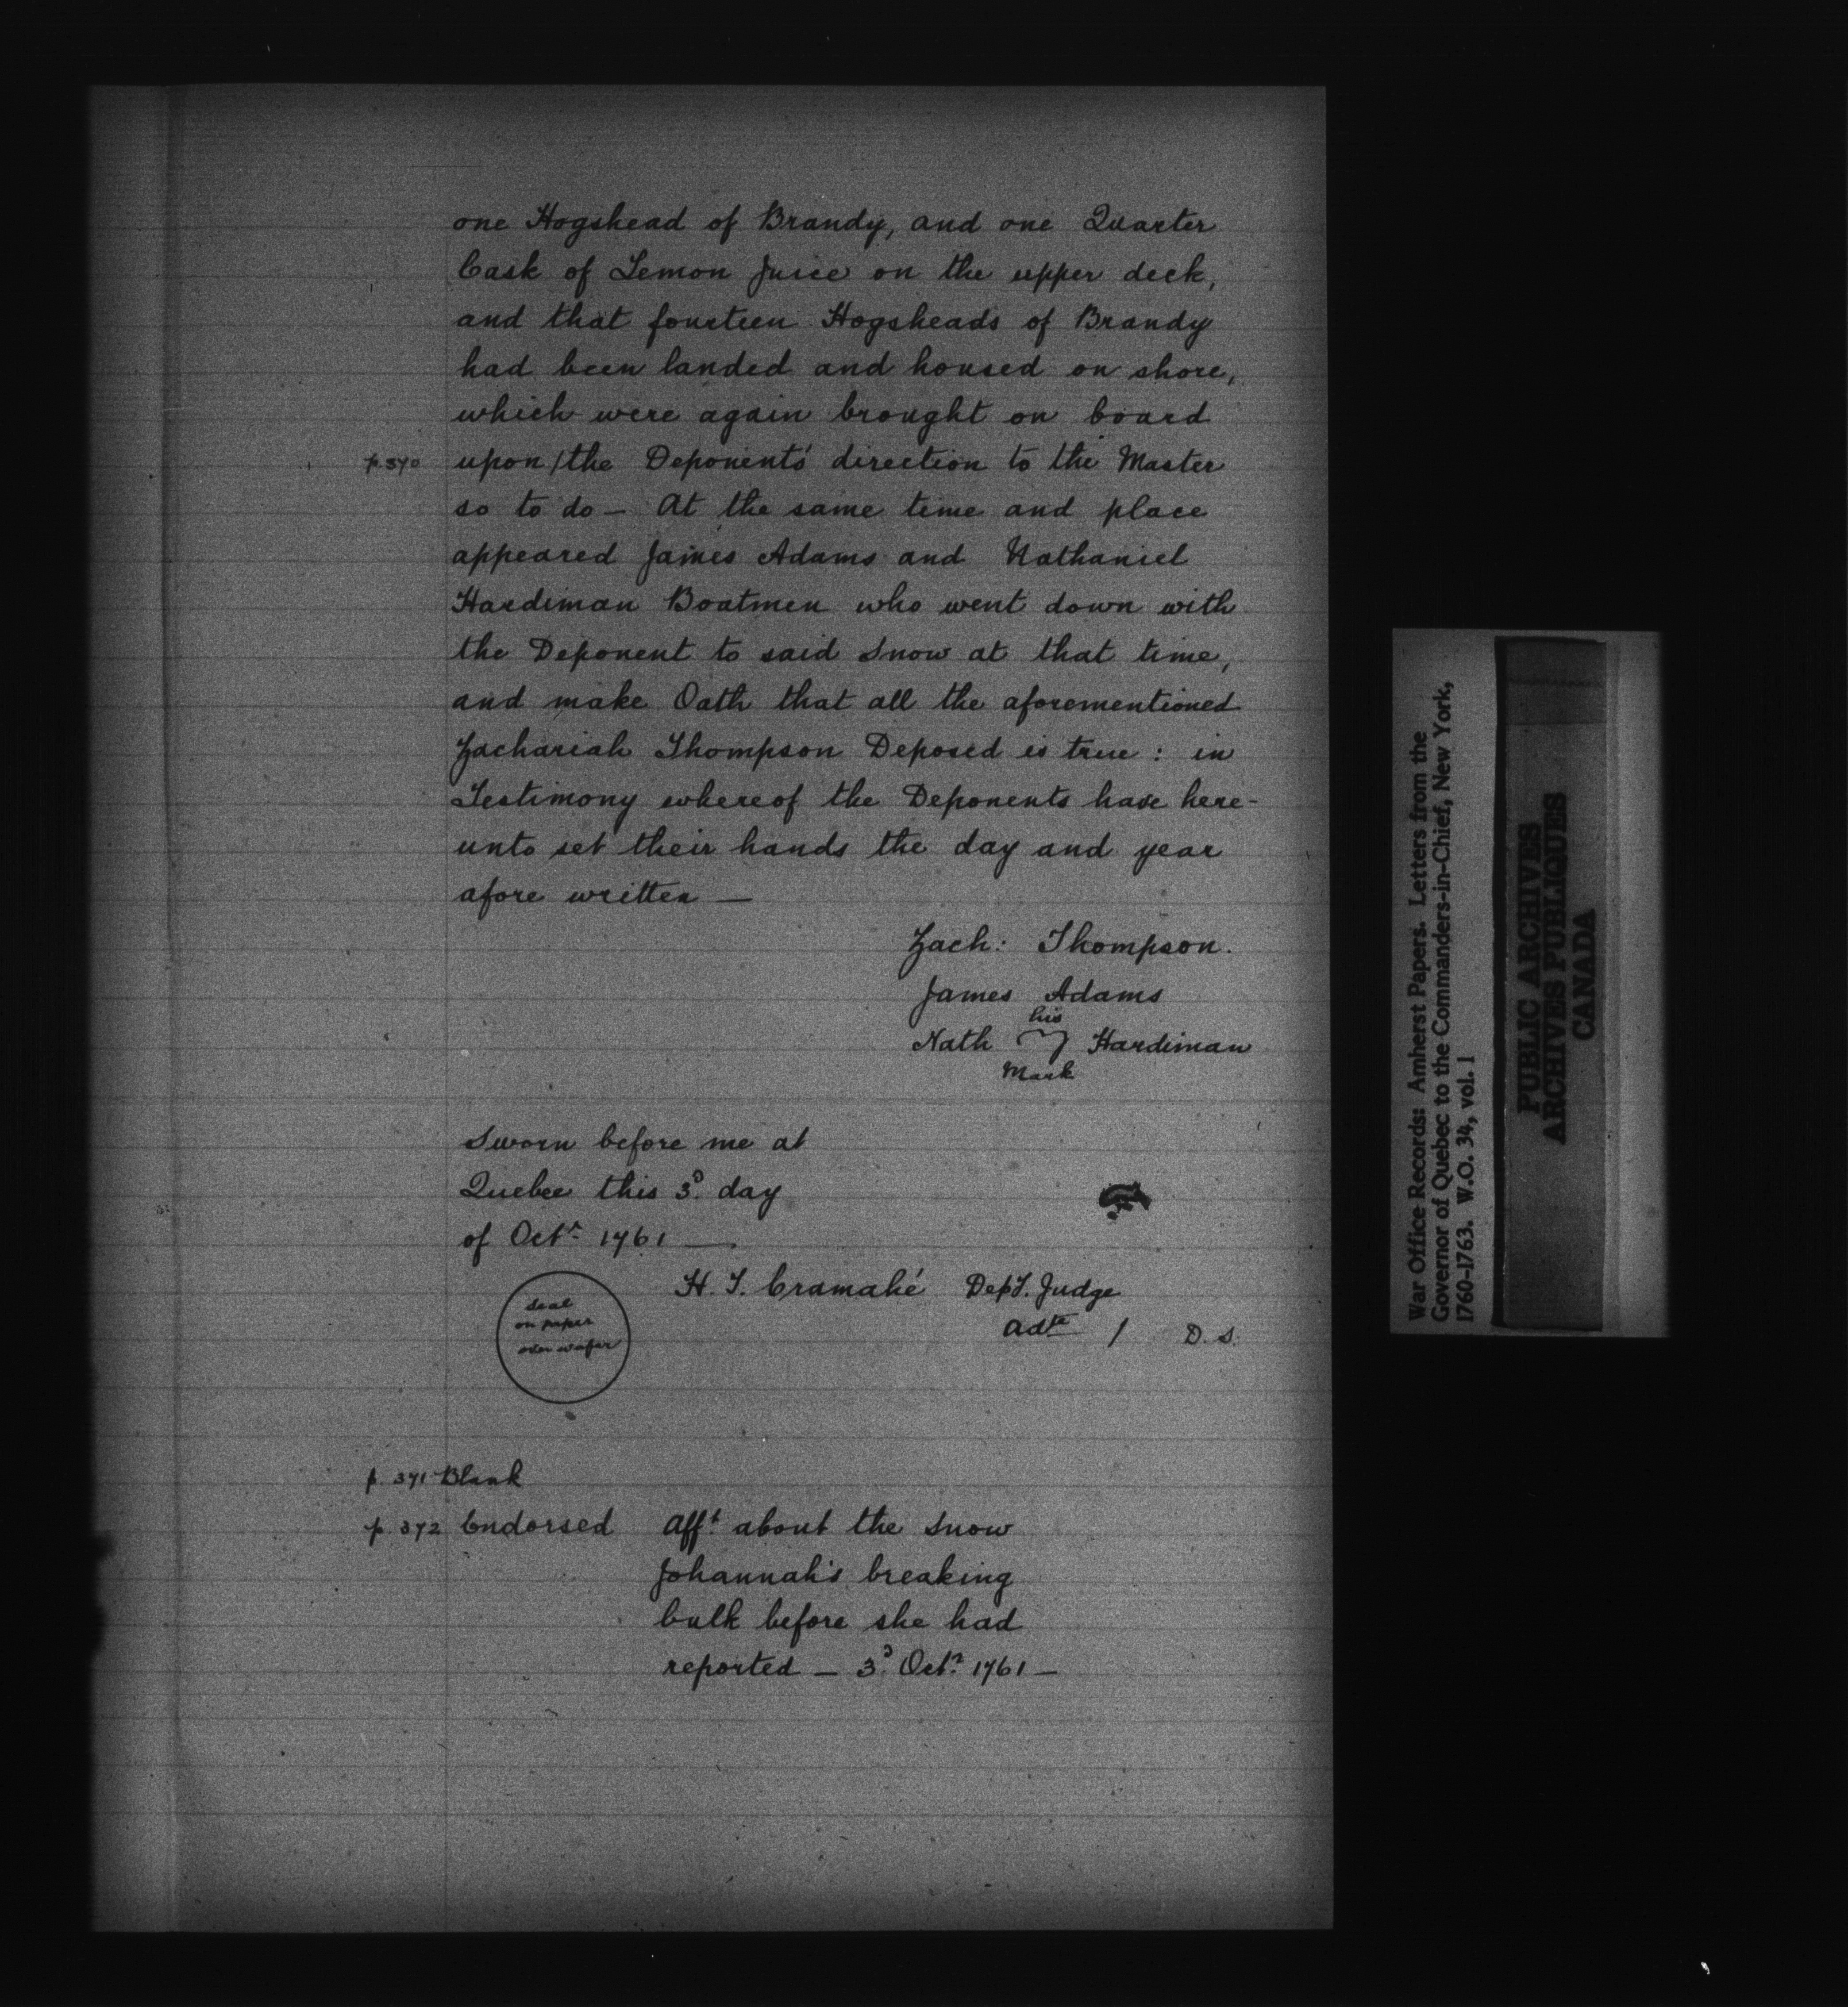 one Hogshead of Brandy, and one Quarter
Cask of Lemon Juice on the upper deck,
and that fourteen Hogsheads of Brandy
had been landed and housed on shore,
which were again brought on board
p. 370 upon / the Deponents' direction to the Master
so to do — At the same time and place
appeared James Adams and Nathaniel
Hardiman Boatmen who went down with
the Deponent to said Snow at that time,
and make Oath that all the aforementioned
Zachariah Thompson Deposed is true : in
Testimony whereof the Deponents have here-
unto set their hands the day and year
afore written —
Zach: Thompson.
James Adams
his
Nath Hardiman
Mark
Sworn before me at
Quebec this 3d. day
of Octr. 1761 —
H. T. Cramahé Dep T. Judge
Adte / D. S.
Seal
on paper
over wafer
p. 371 Blank
p. 372 Endorsed Afft about the Snow
Johannah's breaking
bulk before she had
reported — 3d. Octr. 1761 —
War Office Records: Amherst Papers. Letters from the
Governor of Quebec to the Commanders-in-Chief, New York,
1760-1763. W.O. 34, vol. 1
PUBLIC ARCHIVES
ARCHIVES PUBLIQUES
CANADA